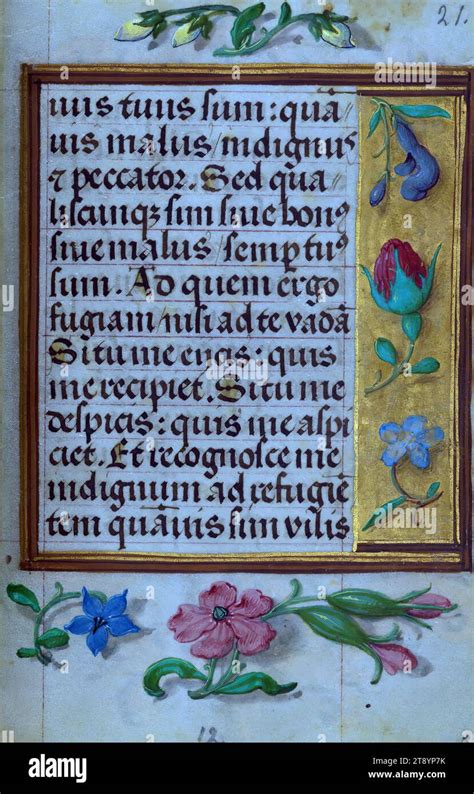 21.
uus tuus sum: quā
uis malus / indignus
⁊ peccator. Sed qua
liscunqꝫ sim siue bonꝰ
siue malus / semp tuꝰ
sum. Ad quem ergo
fugiam / nisi ad te vadā
Si tu me eiicis: quis
me recipiet. Si tu me
despicis: quis me aspi
ciet. Et recognosce me
indignum ad refugiē
tem quāuis sim vilis
12
alamy
Image ID: 2T8YP7K
www.alamy.com